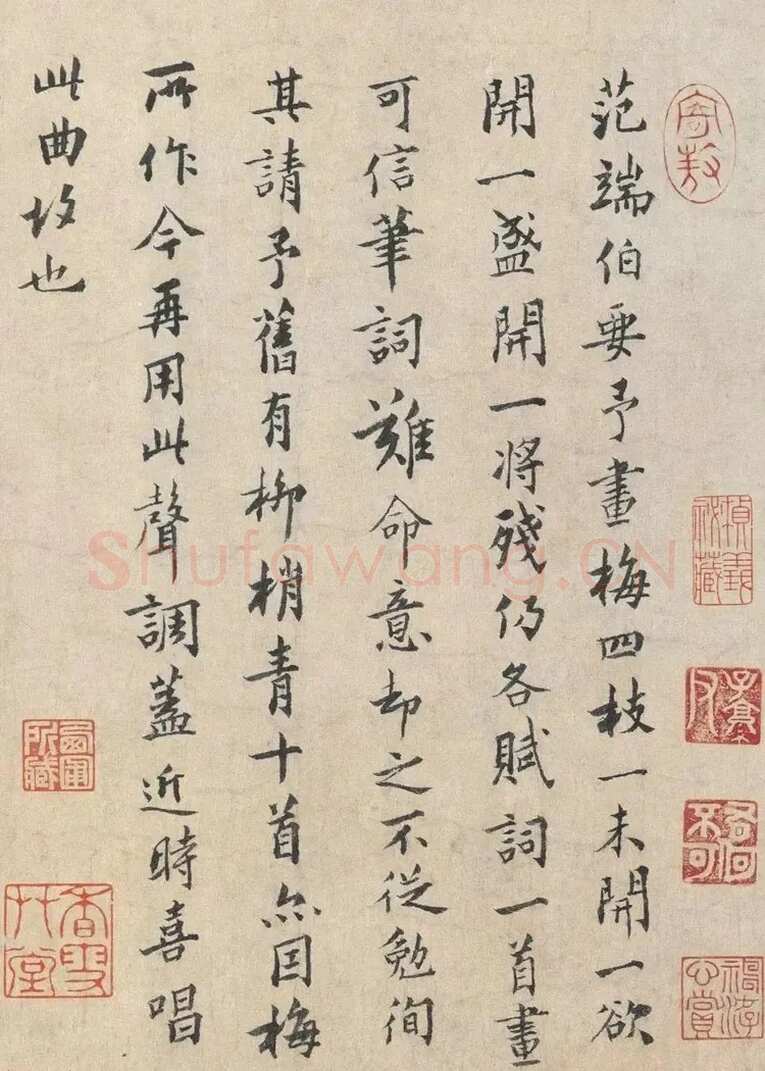 寄敖
范端伯要予畫梅四枝一未開一欲
開一盛開一将殘仍各賦詞一首畫
可信筆詞難命意却之不從勉徇
其請予舊有柳梢青十首亦因梅
所作今再用此聲調蓋近時喜唱
此曲故也
香雪艸堂
Shufawang.CN